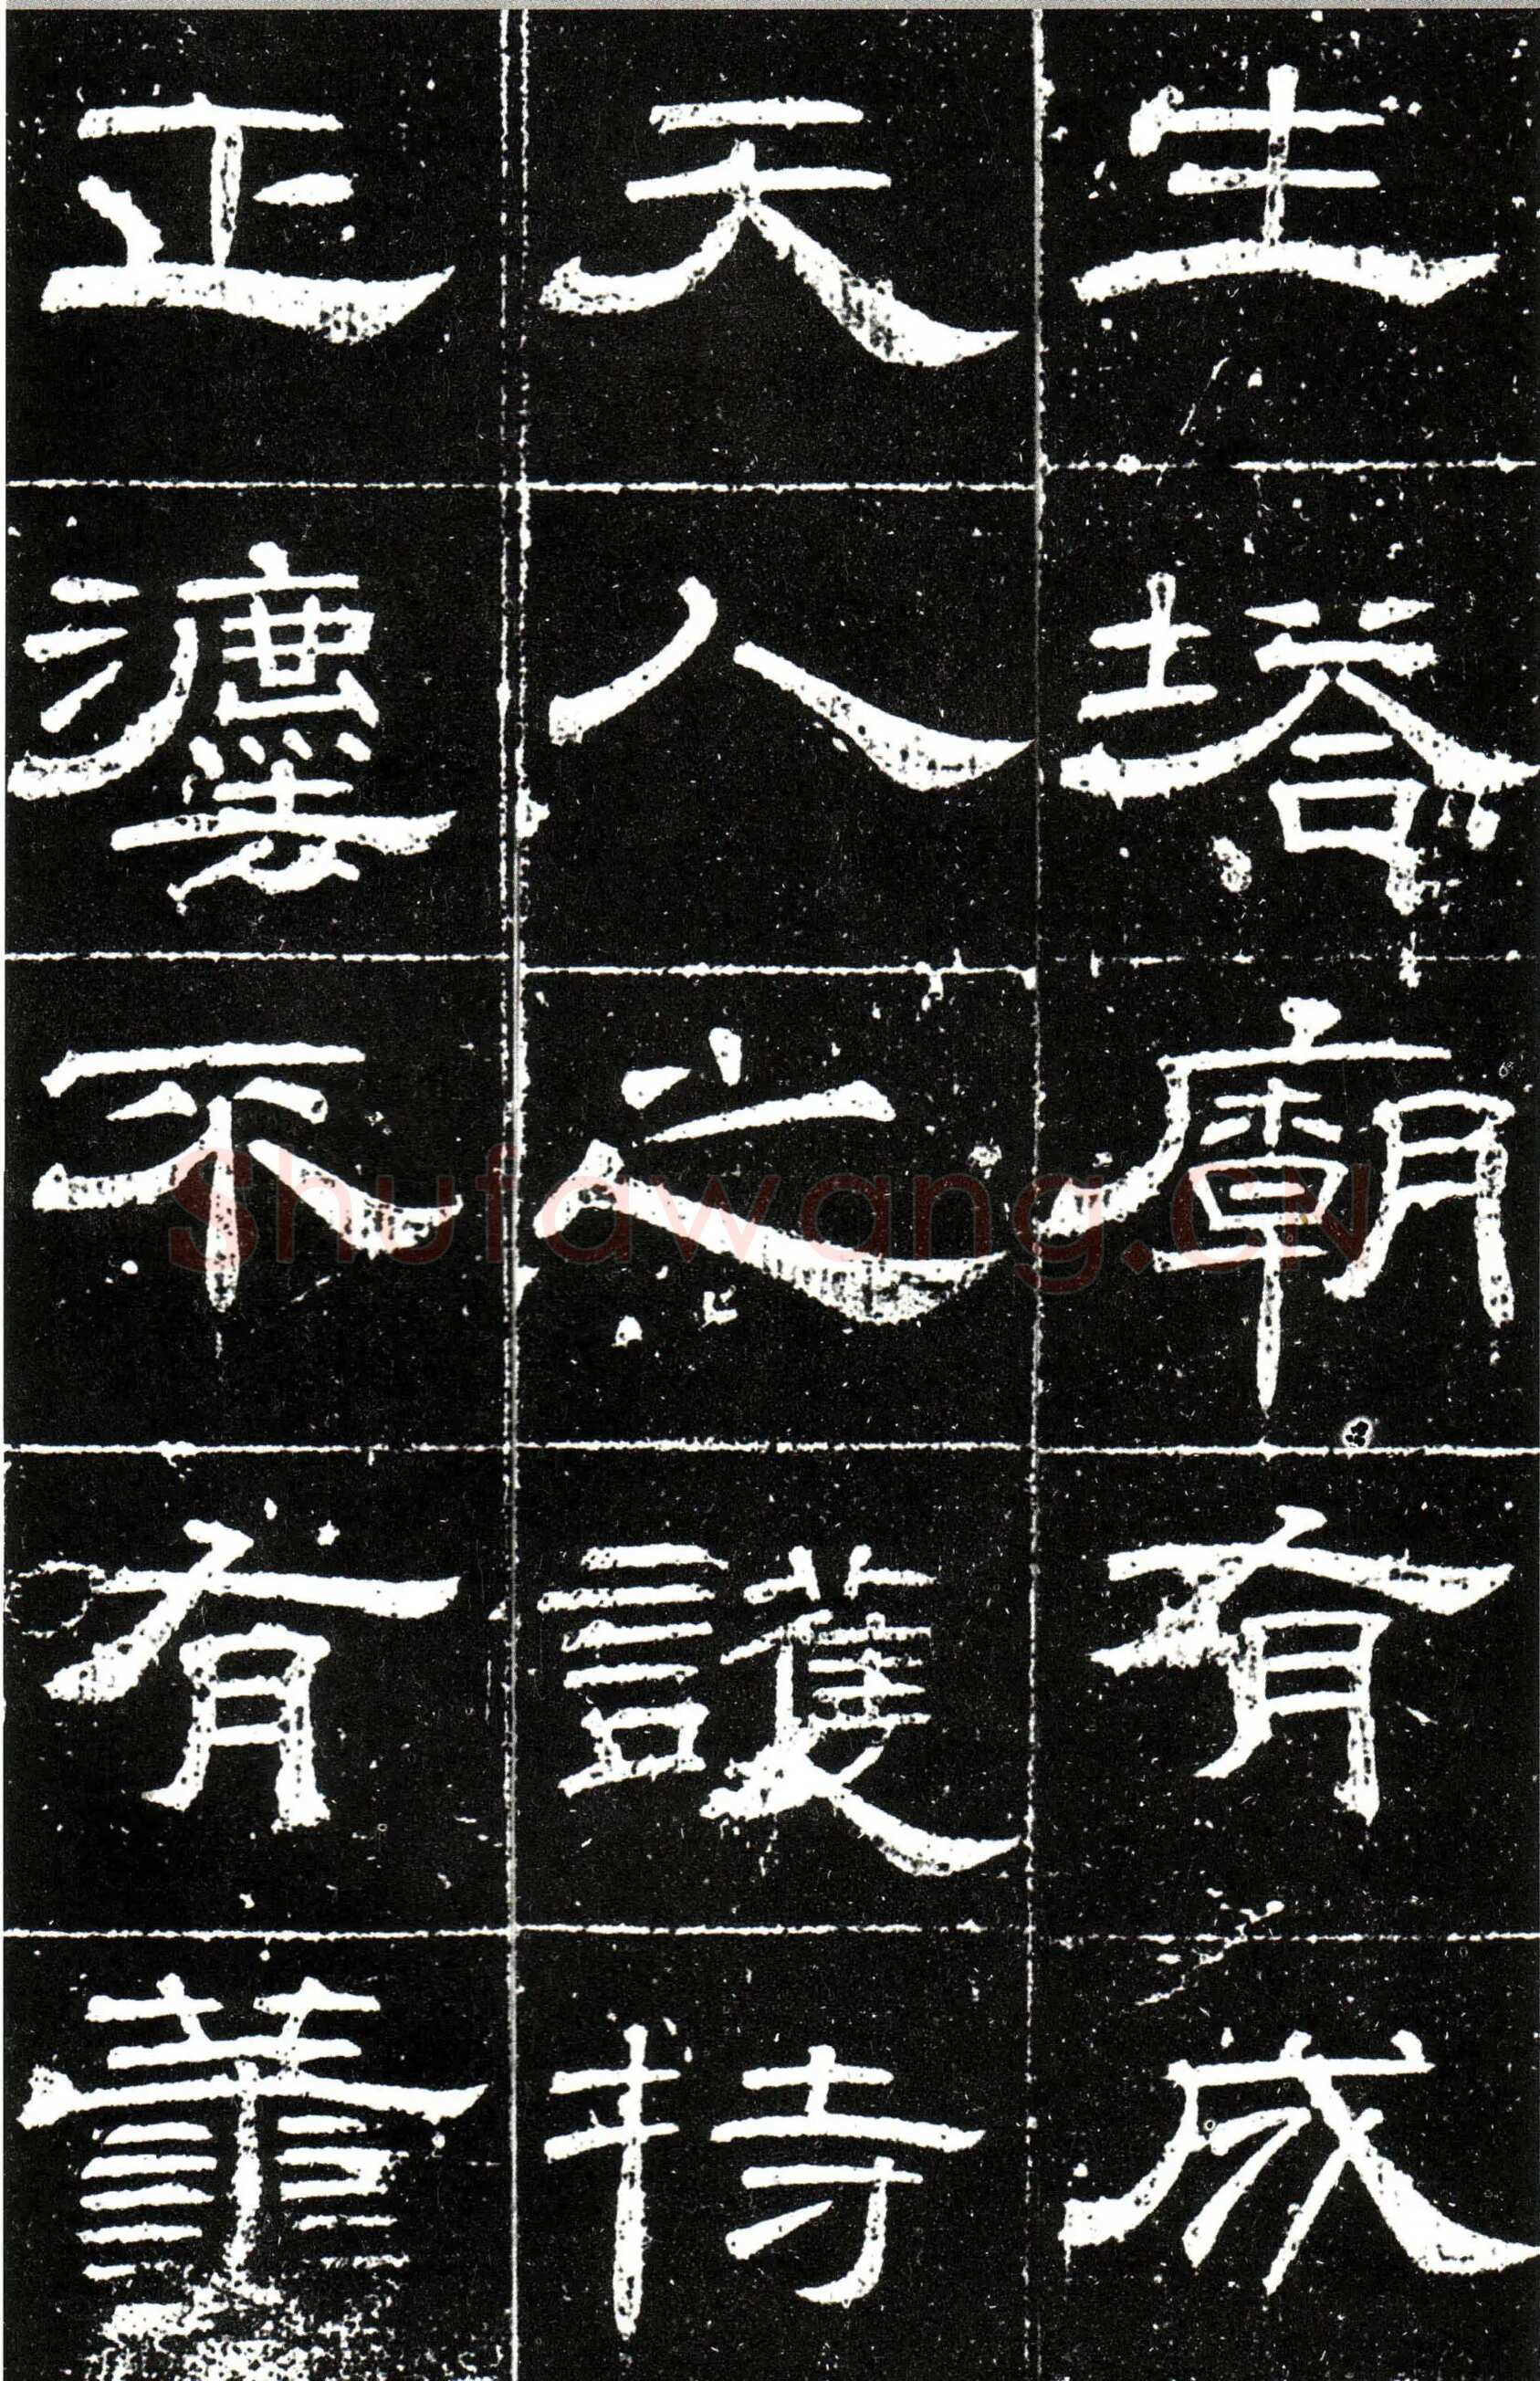 生塔廟有成
天人之護持
正灋不有
Shufawang.CN